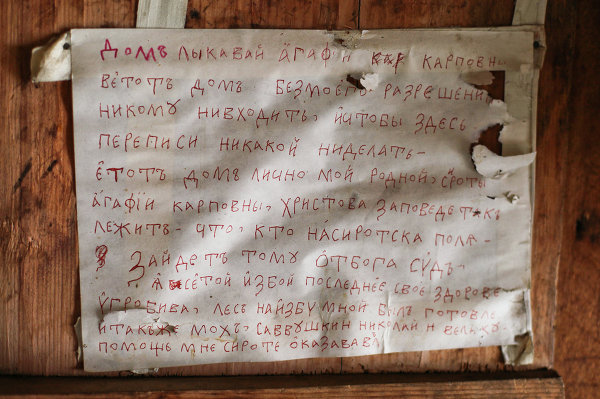 ДОМЪ ЛЫКАВАЙ А́ГАФІИ КАРПОВНЫ
ВЕ́ТОТЪ ДОМЪ БЕЗМОЕГО РАЗРЕШЕНИ
НИКОМУ НИВХОДИТЬ, И́ЧТОБЫ ЗДЕСЬ
ПЕРЕПИСИ НИКАКОЙ НИДЕЛАТЬ-
Е́ТОТЪ ДОМЪ ЛИЧНО МОЙ РОДНОЙ, СИРОТЫ
А́ГАФІЙ КАРПОВНЫ, ХРИСТОВА ЗАПОВЕДЕ ТАКЪ
ЛЕЖИТЬ- ЧТО, КТО НА́СИРОТСКА ПОЛЯ-
ЗАЙДЕТЪ ТОМУ О́ТБОГА СУ́ДЪ-
А́ СЕ́ТОЙ И́ЗБОЙ ПОСЛЕДНЕЕ СВОЕ ЗДОРОВЕ
У́ГРОБИВА, ЛЕСЪ НАИ́ЗБУ МНОЙ БЫЛЪ ГОТОВЛЕ
И́ТАКЪЖЕ МОХЪ, САВВУШКИН НИКОЛАЙ Н ВЕЛИКУ
ПОМОЩЬ МНЕ СИРОТЕ О́КАЗАВАВ